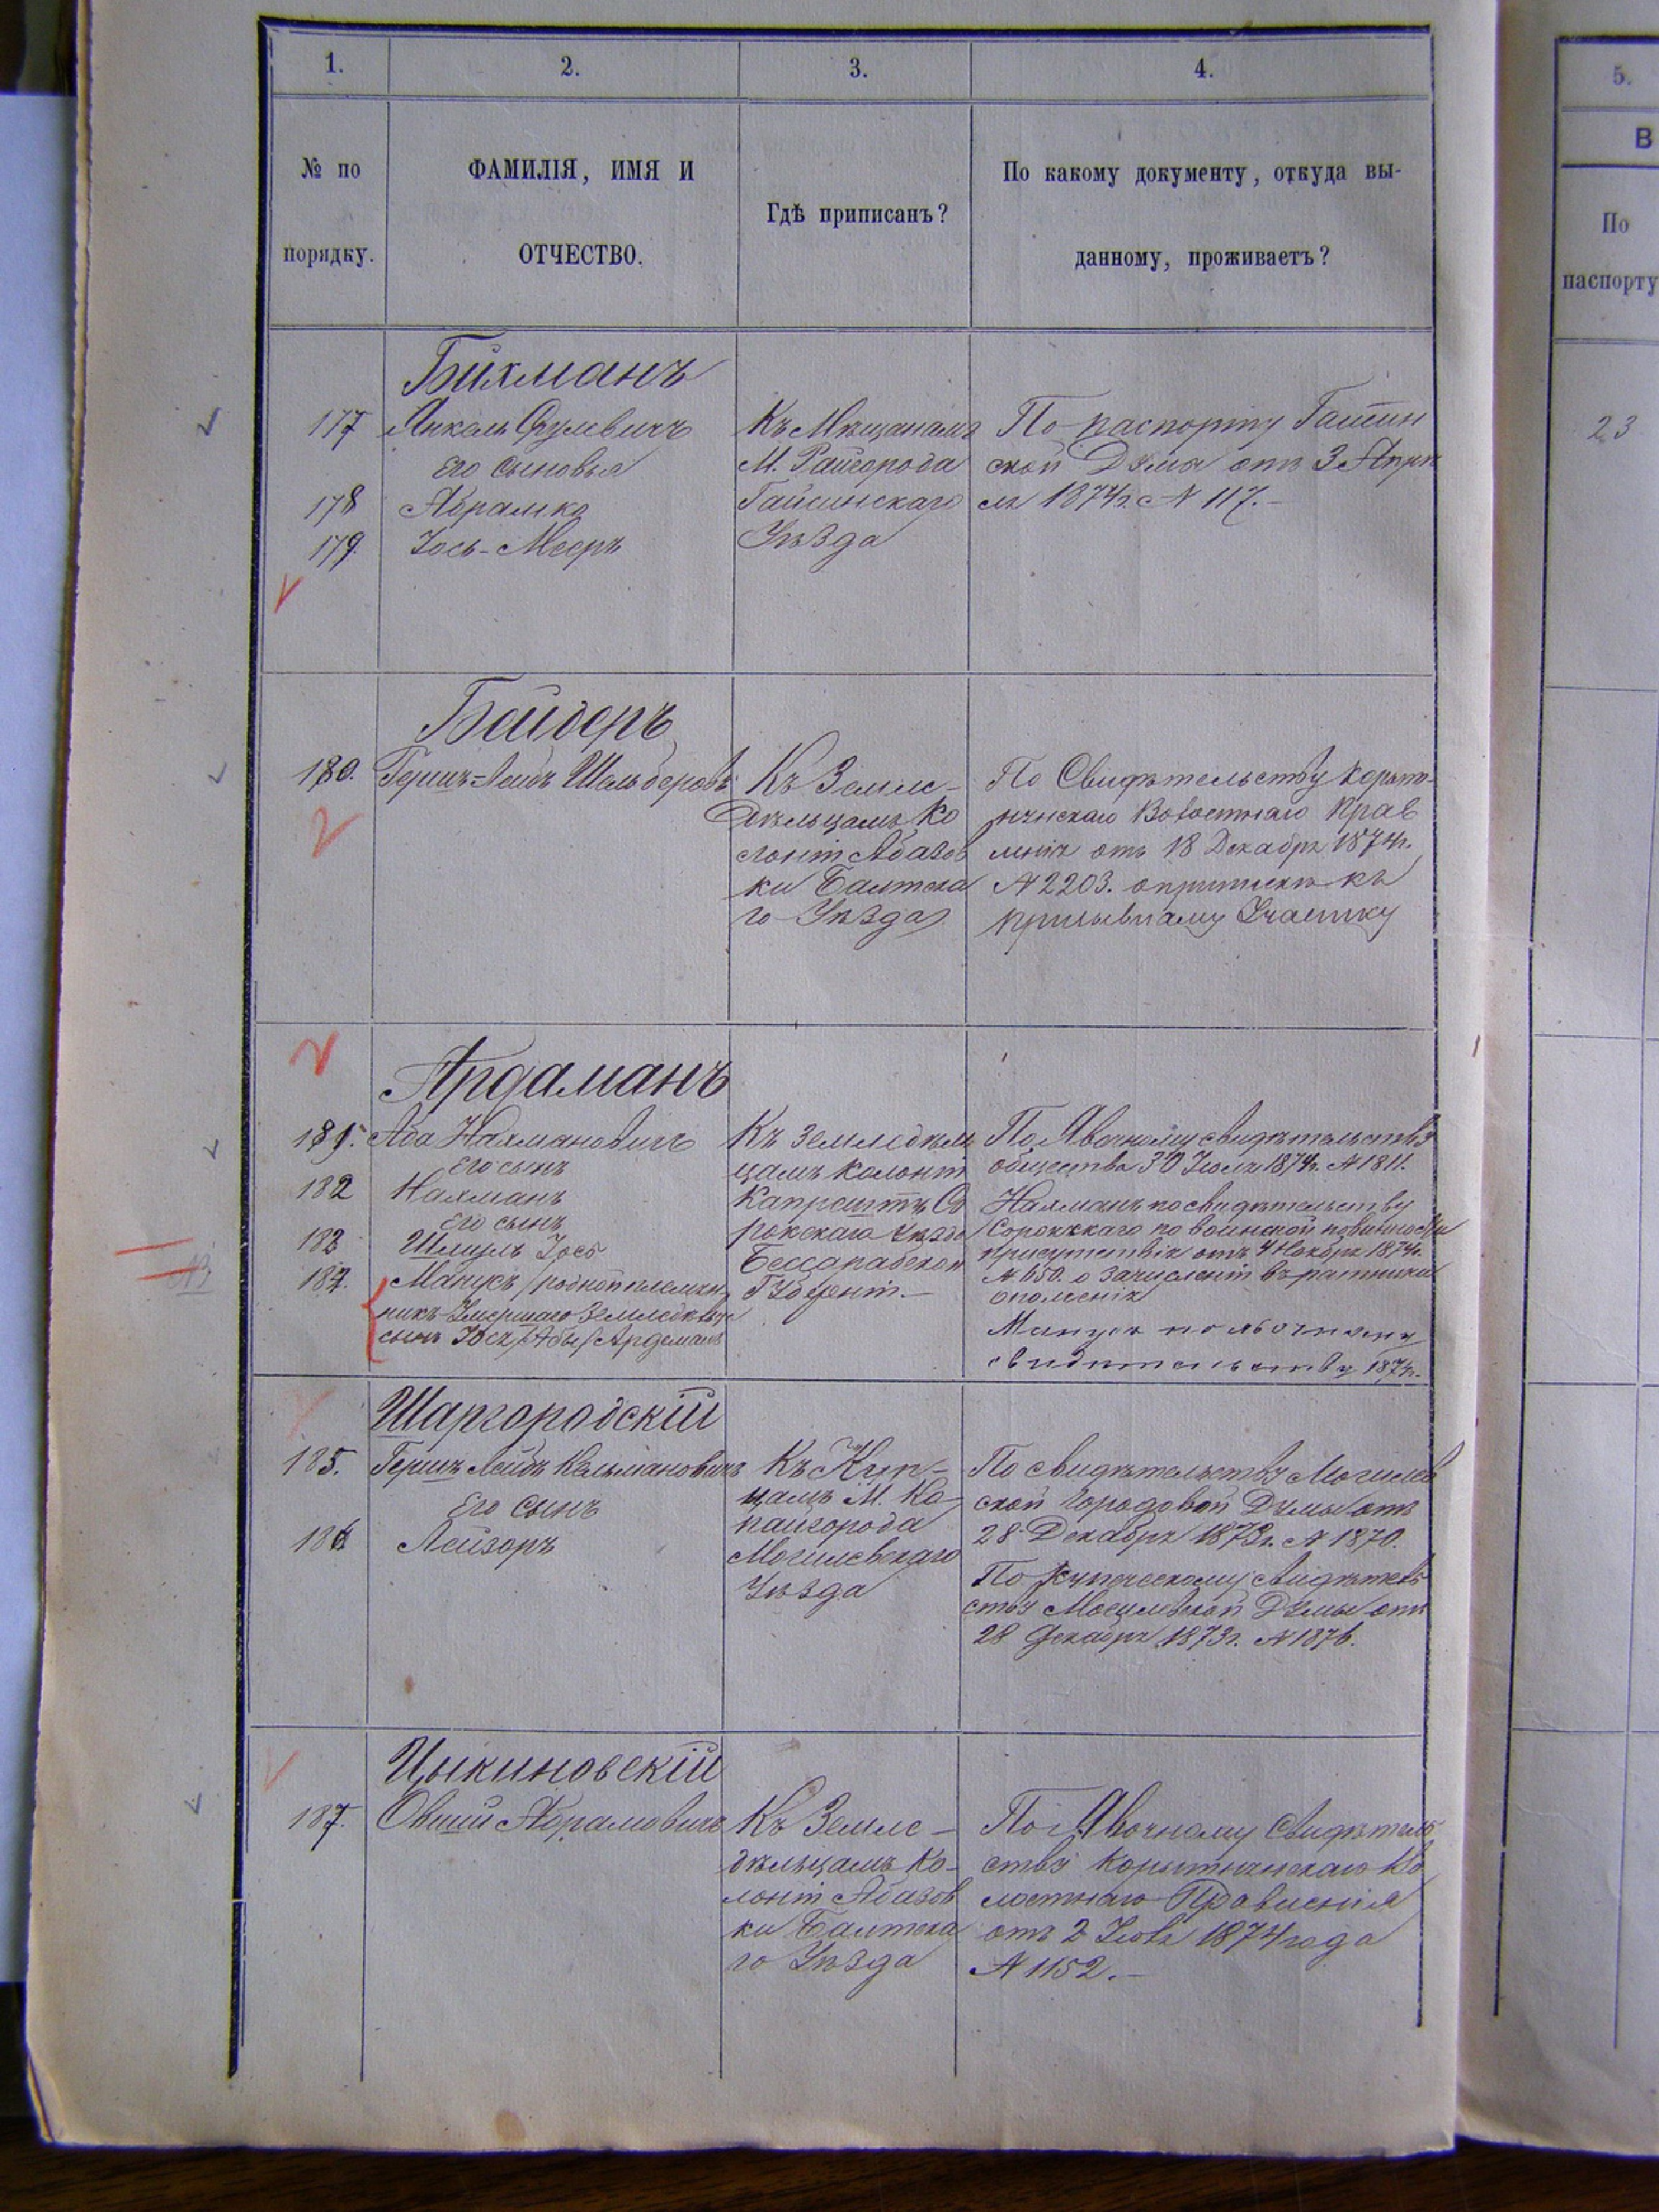 1. 2. 3. 4.
№ по порядку.
ФАМИЛІЯ, ИМЯ И ОТЧЕСТВО.
Гдѣ приписанъ?
По какому документу, откуда вы-
данному, проживаетъ?
Бихманъ
177 Янкель Срулевичъ
Его сыновья
178 Абрамко
179 Іось-Мееръ
Къ Мѣщанамъ
М. Райгорода
Гайсинскаго
Уѣзда
По паспорту Гайсин
ской Думы отъ 3 Апрѣ
ля 1874 г. № 117.-
Бейдеръ
180. Гершъ-Лейбъ
Къ Земле-
дѣльцамъ Ко
лоніи Абазов
ки Балтска
го Уѣзда
По Свидѣтельству Корыт-
нянскаго Волостнаго Прав
ленія отъ 18 Декабря 1874 г.
№ 2203. о припискѣ къ
призывному Участку
Ардаманъ
181. Аба Нахмановичъ
Его сынъ
182 Нахманъ
Его сынъ
183 Шмуль Іось
184. Манусъ /родной племян
никъ Умершаго Земледѣльца
сынъ /Абы/ Ардаманъ
Къ Земледѣль
цамъ Колоніи
Капрешты Со
рокскаго Уѣзда
Бессарабской
Губерніи.-
По Явочному свидѣтельству
общества 30 Іюля 1874 г. № 1811.
Нахманъ по свидѣтельству
Сорокскаго по воинской повинности
присутствія отъ 4 Ноября 1874 г.
№ 650. о зачисленіи въ ратники
ополченія
Манусъ по явочному
свидѣтельству 1874 г.
Шаргородскій
185. Гершъ Лейбъ Кельмановичъ
Его сынъ
186 Лейзоръ
Къ Куп-
цамъ М. Ко-
пайгорода
Могилевскаго
Уѣзда
По свидѣтельству Могилев
ской Городовой Думы отъ
28 Декабря 1873 г. № 1870.
По купеческому свидѣтель
ству Могилевской Думы отъ
28 Декабря 1873 г. № 1876.
Цыкиновскій
187. Овшій Абрамовичъ
Къ Земле-
дѣльцамъ Ко-
лоніи Абазов
ки Балтска
го Уѣзда
По Явочному Свидѣтель
ству Корытнянскаго Во
лостнаго Правленія
отъ 2 Іюля 1874 года
№ 1152.-
5.
В
По
паспорту
23